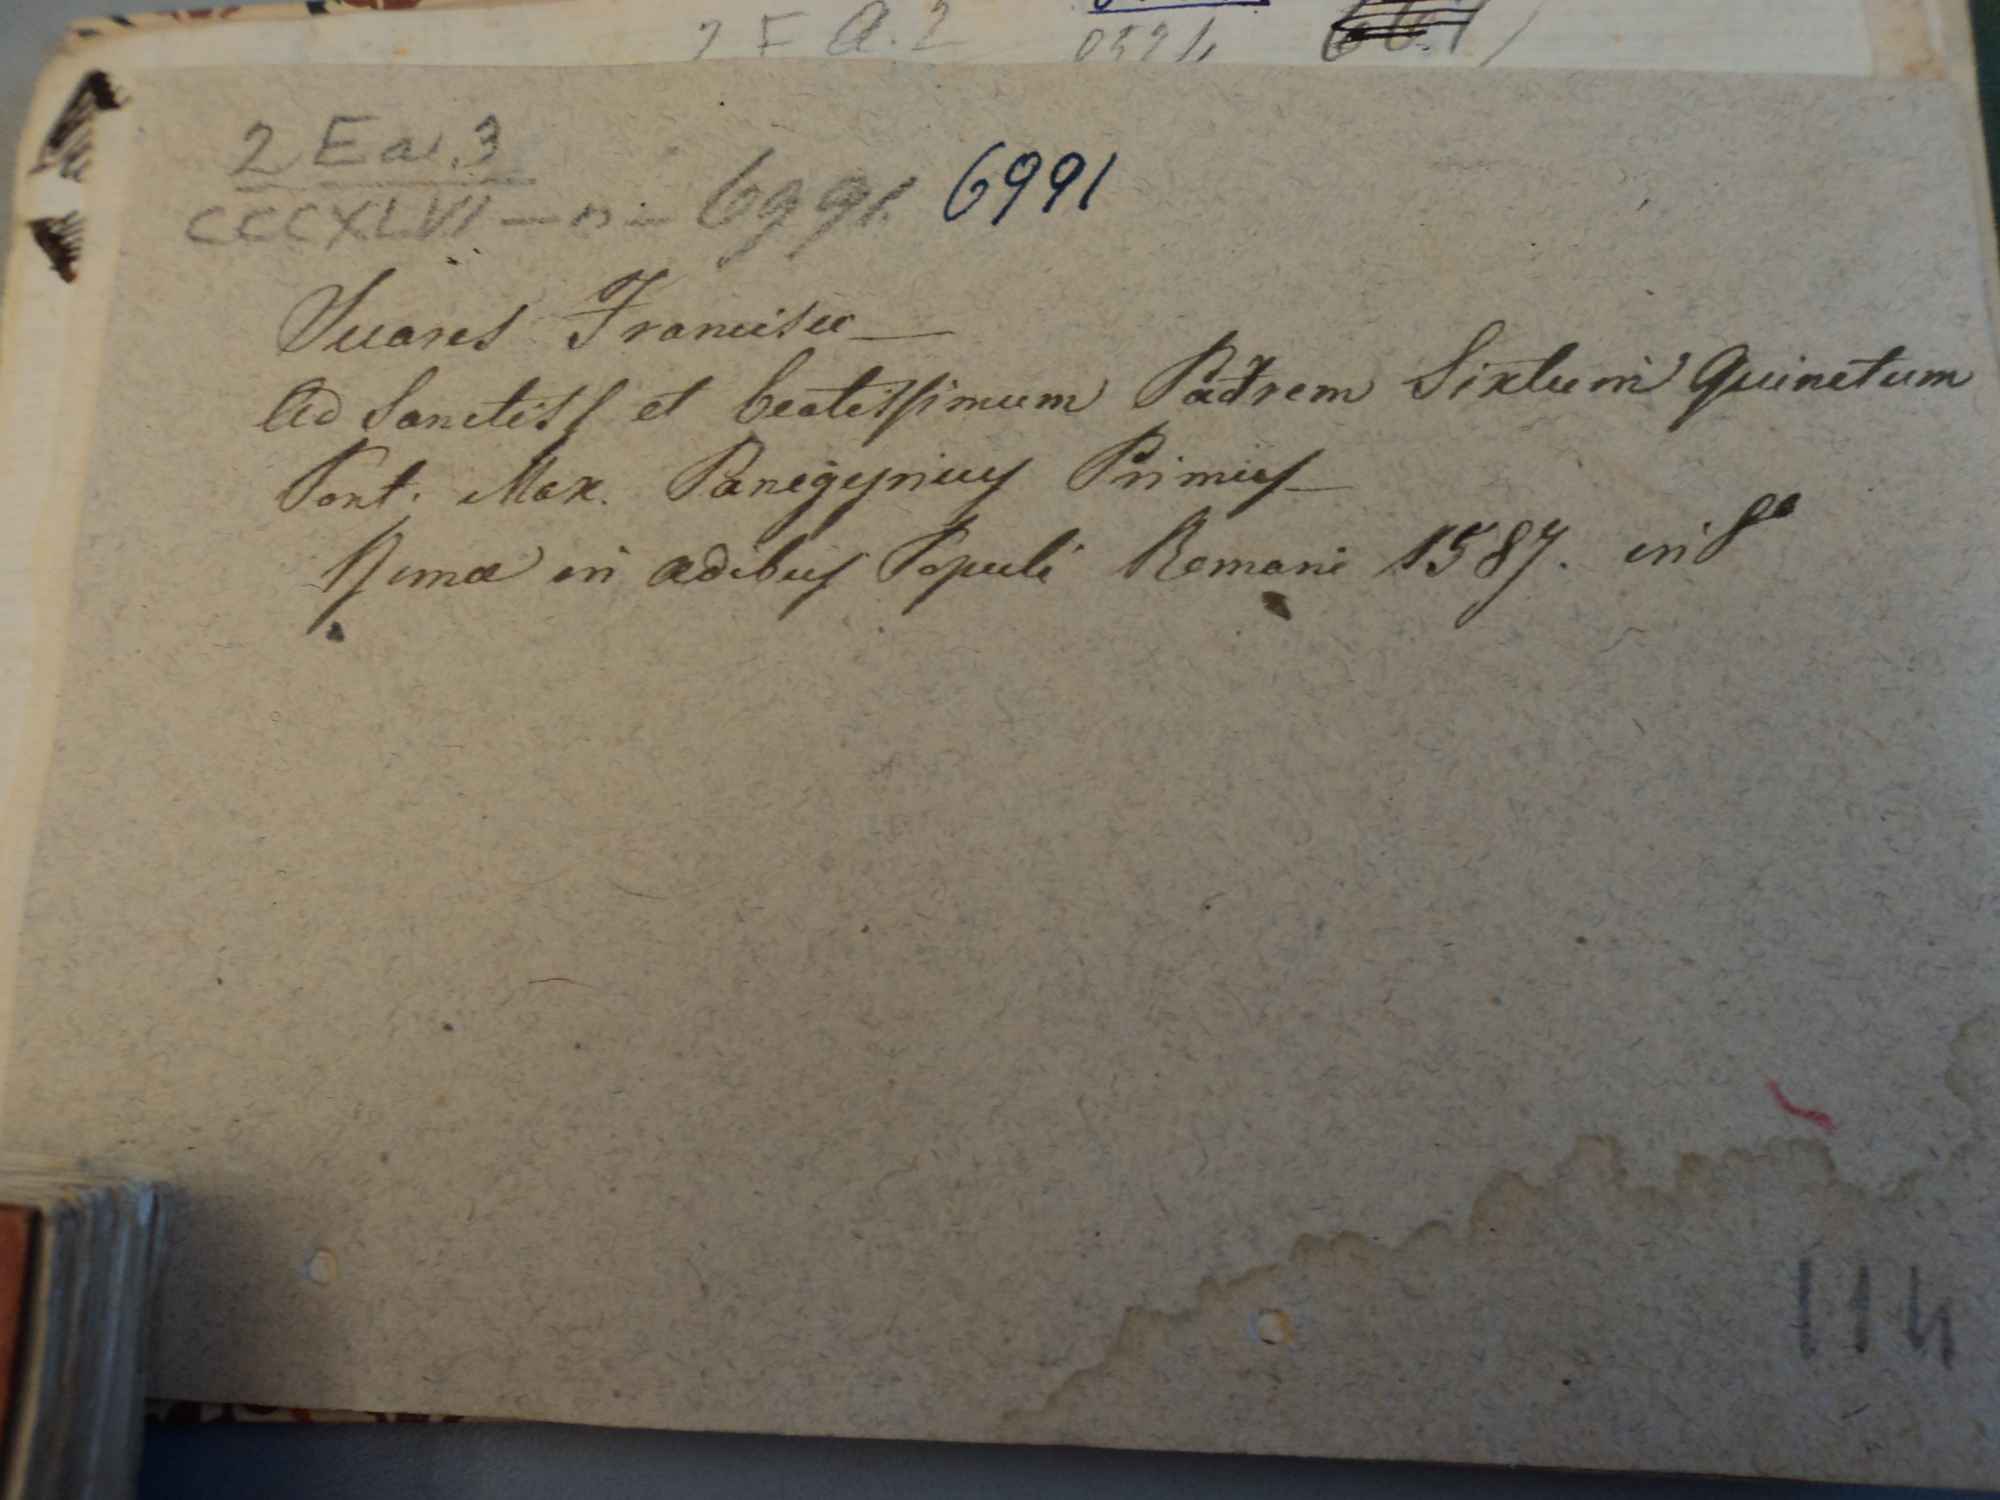 2 E a. 2
2 Ea. 3
CCCXLVI — n — 6991. 6991
Suares Francisco —
Ad Sanctiss et beatissimum Padrem Sixtum Quinctum
Pont. Max. Panegyricus Primus —
Romæ in ædibus Populi Romani 1587. in 8º
114